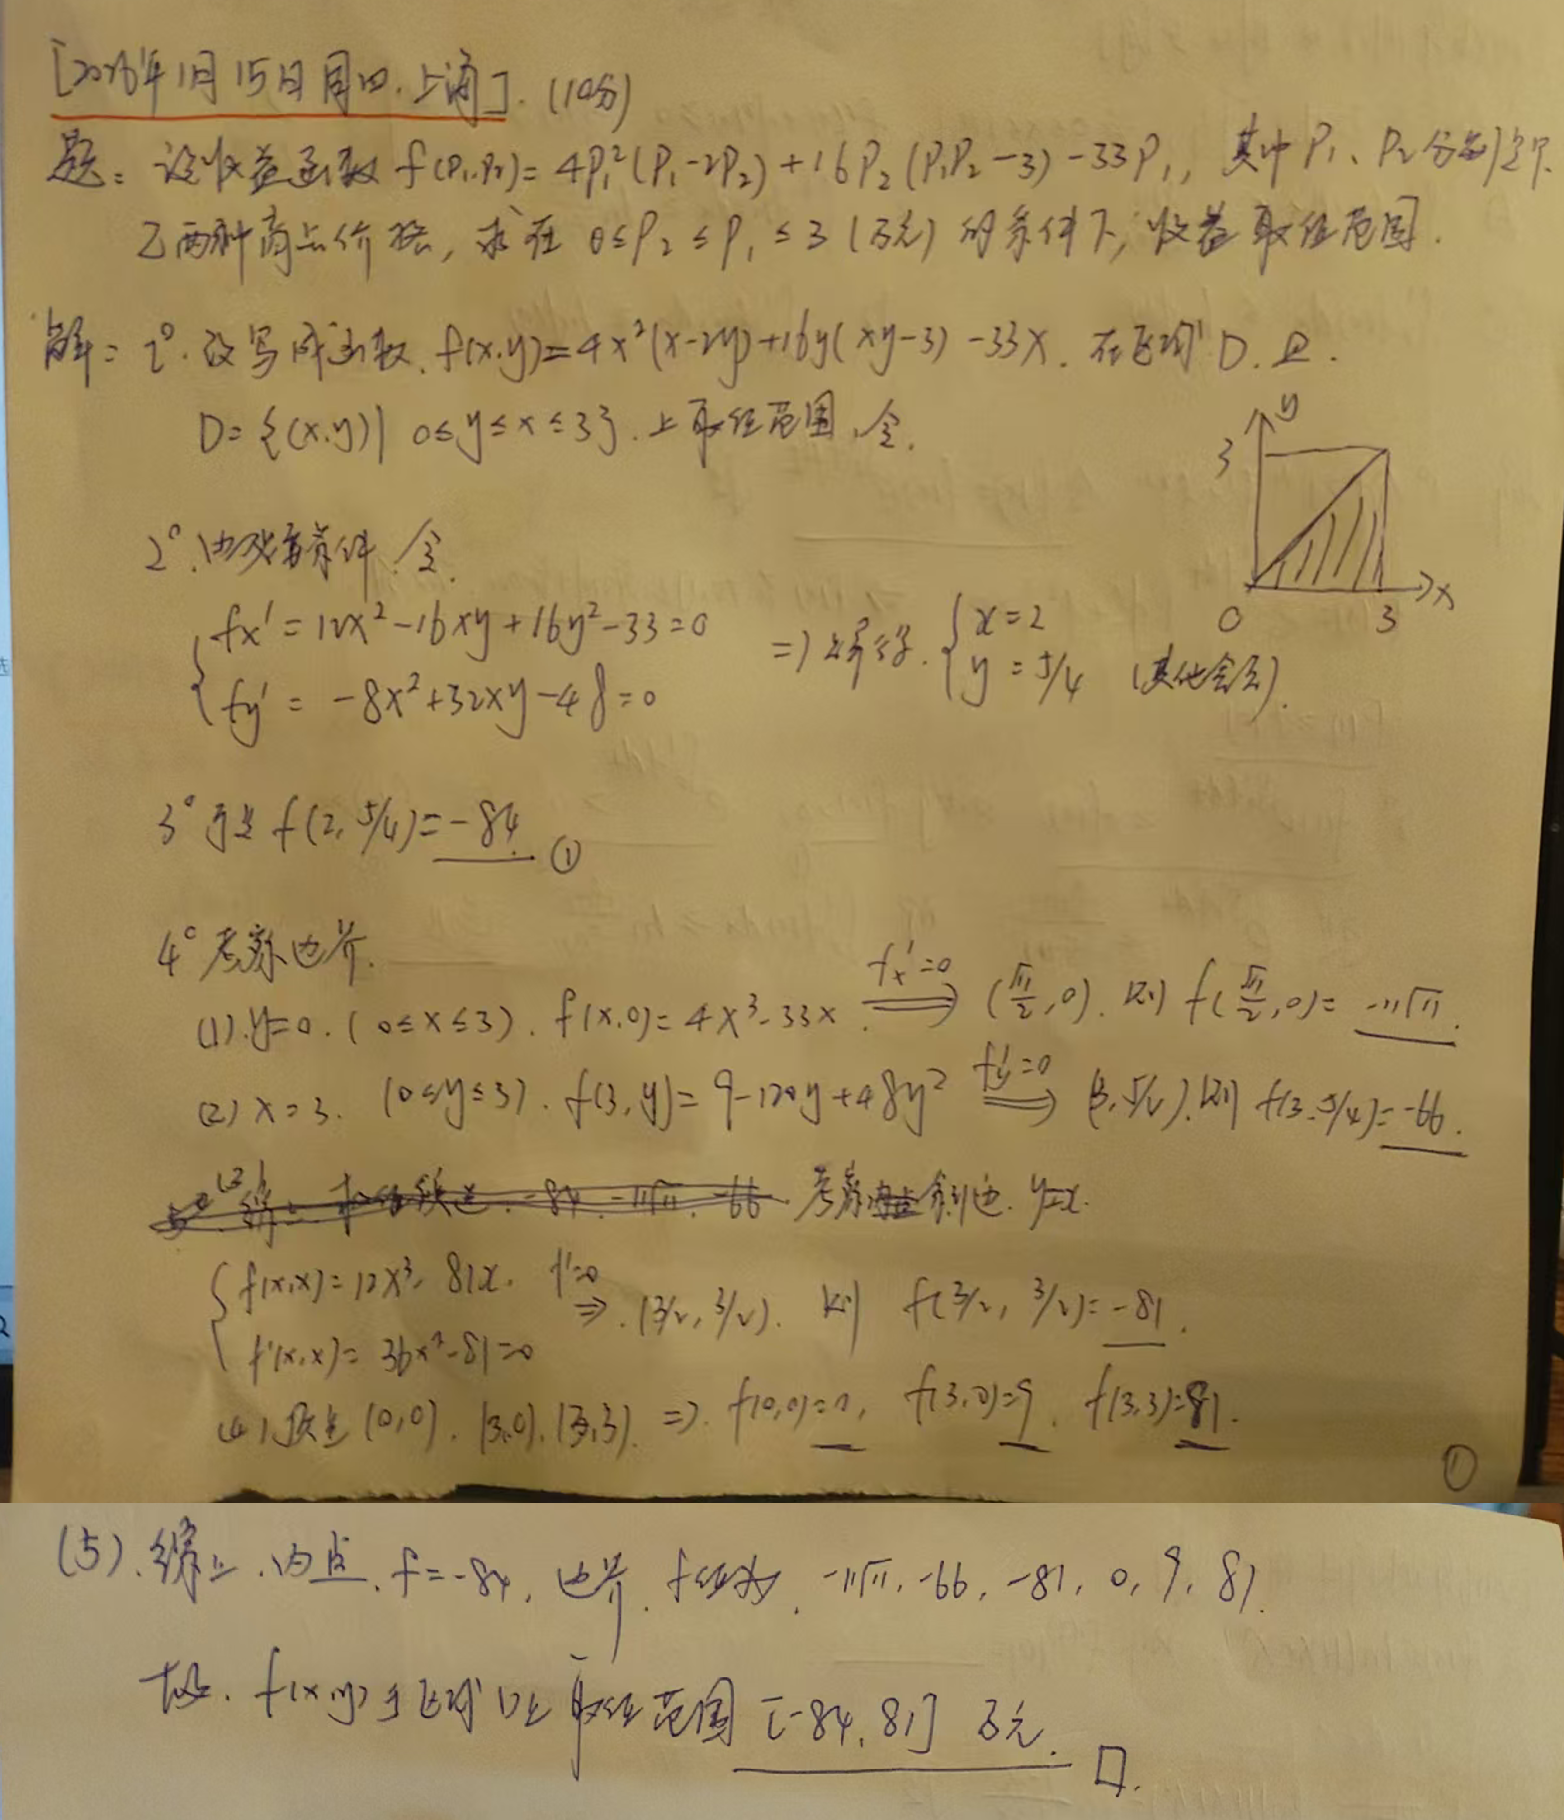 [2026年1月15日周四.上海]. (10分)
题: 设收益函数 f(P₁,P₂)=4P₁²(P₁-2P₂)+16P₂(P₁P₂-3)-33P₁, 其中 P₁、P₂分别是甲
乙两种商品价格, 求在 0≤P₂≤P₁≤3 (万元) 的条件下, 收益取值范围.
解: 1°. 改写成函数. f(x,y)=4x²(x-2y)+16y(xy-3)-33x. 在区域 D. 且.
D={(x,y)| 0≤y≤x≤3}. 上取值范围. 令.
y
3
0 3 x
2°. 由必要条件. 令.
fx'=12x²-16xy+16y²-33=0
fy'=-8x²+32xy-48=0
=> 解得. { x=2
y=5/4 (其他舍去).
3° 于是 f(2, 5/4)=-84. ①
4° 考察边界.
(1). y=0. (0≤x≤3). f(x,0)=4x³-33x. fx'=0 => (√11/2, 0). 则 f(√11/2, 0)=-11√11.
(2) x=3. (0≤y≤3). f(3,y)=9-120y+48y² fy'=0 => (3, 5/4). 则 f(3, 5/4)=-66.
(3) 考察斜边. y=x.
f(x,x)=12x³-81x. f'=0 => (3/2, 3/2). 则 f(3/2, 3/2)=-81.
f'(x,x)=36x²-81=0
(4) 顶点 (0,0). (3,0). (3,3). => f(0,0)=0, f(3,0)=9, f(3,3)=81.
①
(5). 综上. 内点. f=-84, 边界. f值为. -11√11, -66, -81, 0, 9, 81.
故. f(x,y)于区域D上取值范围 [-84, 81] 万元. □.